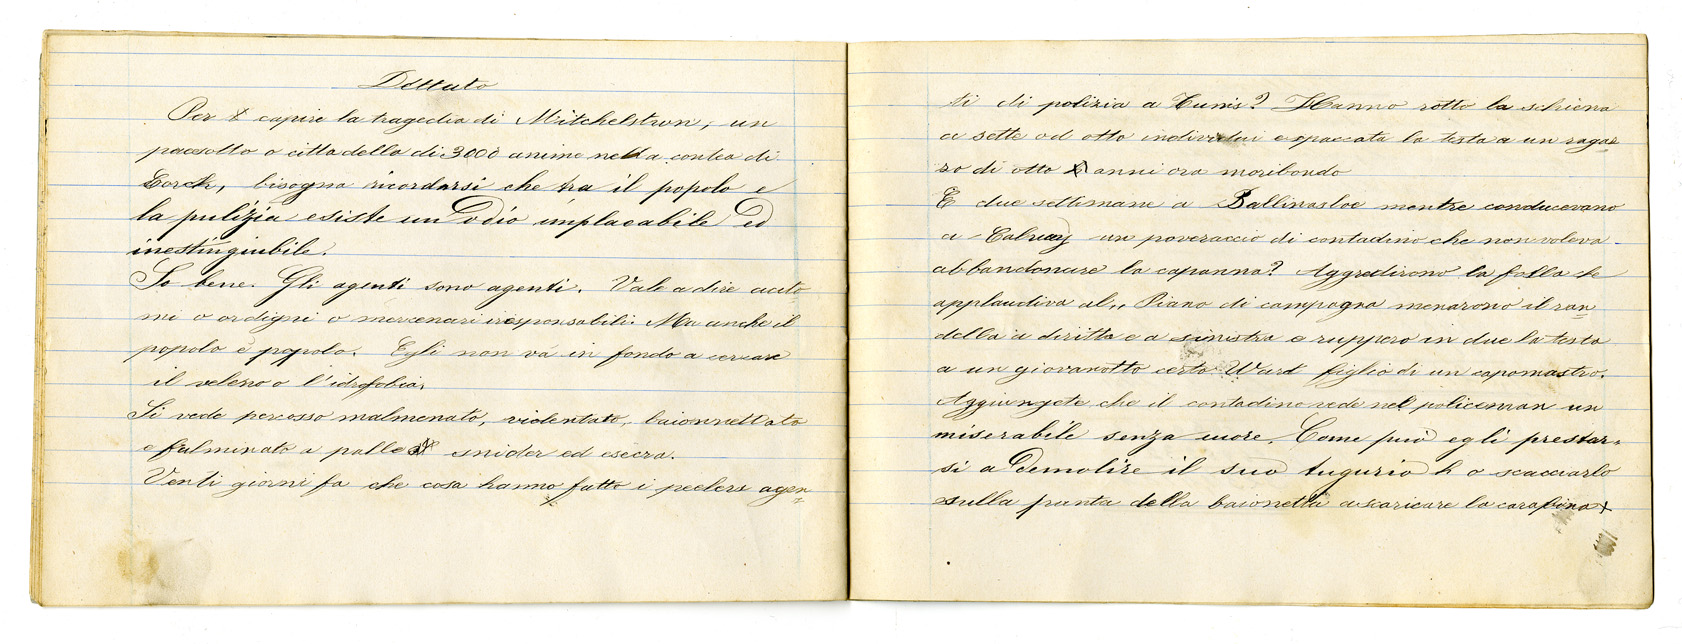 Dettato
Per capire la tragedia di Mitchelstwn, un
paesotto o cittadella di 3000 anime nella contea di
Corck, bisogna ricordarsi che tra il popolo e
la pulizia esiste un Odio implacabile ed
inestinguibile.
So bene. Gli agenti sono agenti. Vale a dire auto
mi o ordigni o mercenari iresponsabili. Ma anche il
popolo è popolo. Egli non và in fondo a cercare
il veleno o l'idrofobia,
Si vede percosso malmenato, violentato, baionnettato
e fulminato a palle snider ed esecra.
Venti giorni fa che cosa hanno fatto i peelers agen=
ti di polizia a Tunis? Hanno rotto la schiena
a sette od otto individui e spaccata la testa a un ragaz
zo di otto anni ora moribondo
E due settimane a Ballinasloe mentre conducevano
a Galway un poveraccio di contadino che non voleva
abbandonare la capanna? Aggredirono la folla che
applaudiva al,, Piano di campagna menarono il ran=
della a diritta e a sinistra e ruppero in due la testa
a un giovanotto certo Ward figlio di un capomastro.
Aggiungete che il contadino vede nel policeman un
miserabile senza cuore. Come può egli prestar=
si a demolire il suo tugurio h o scacciarlo
sulla punta della baionetta a scaricare la carabina